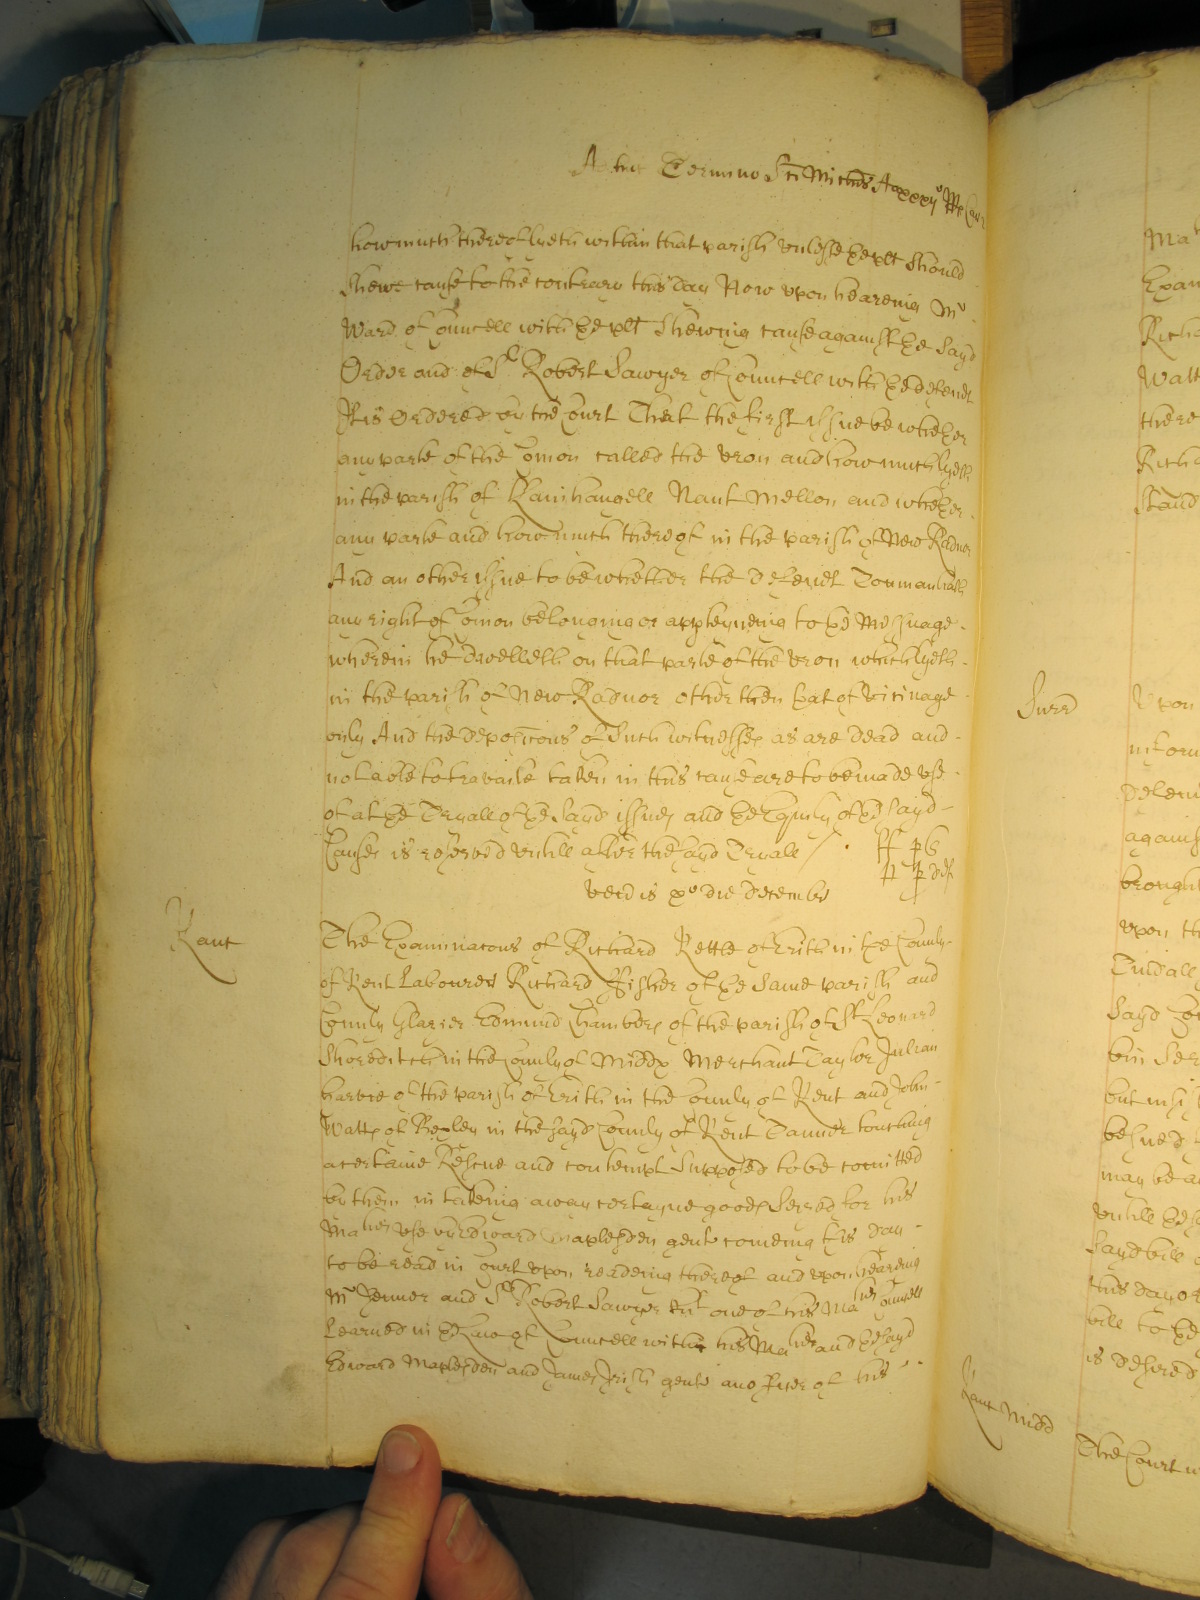 Adhuc Termino Sci Michis Ao xxxijo RRs Car 2
howmuch thereof lyeth within that parish unlesse ye plt should
shewe cause to the contrary this day Now upon heareing Mr
Ward of Councell with ye plt shewing cause against ye sayd
Order and of Sr Robert Sawyer of Councell with ye defendt
It is Ordered by the Court That the first issue be whether
any parte of the Comon called the vron and how much lyeth
in the parish of Lanihangell Nant Mellon and whether
any parte and how much thereof in the parish of New Radnor
And an other issue to be whether the defendt Touman hath
any right of Comon belonging or apperteyneing to ye Messuage
wherein he dwelleth on that parte of the vron which lyeth
in the parish of New Radnor other then yat of vicinage
only And the deposicons of such witnesses as are dead and
not able to travaile taken in this cause are to be made use
of at ye Tryall of ye sayd issues and ye Equity of ye sayd
Cause is reserved untill after the sayd Tryall
x die decembr
Kanc
The Examinacons of Richard Kettle of Erith in ye County
of Kent Labourer Richard ffisher of ye same parish and
County Glazier Edmund Chambers of the parish of St Leonard
Shoreditch in the County of Middx Merchant Taylor Julian
harvie of the parish of Erith in the County of Kent and John
Watts of Bexley in the sayd County of Kent Tanner touching
a certaine Rescue and contempt supposed to be comitted
by them in takeing away certayne goods seized for his
Maties use by Edward Maplesden gent comeing this day
to be read in Court upon readeing thereof and upon heareing
Mr Jenner and Sr Robert Sawyer Knt one of his Maties Councell
Learned in ye Law of Councell with his Matie and ye sayd
Edward Maplesden and James Irish gent another of his
Surr
Kanc Midd
The Court